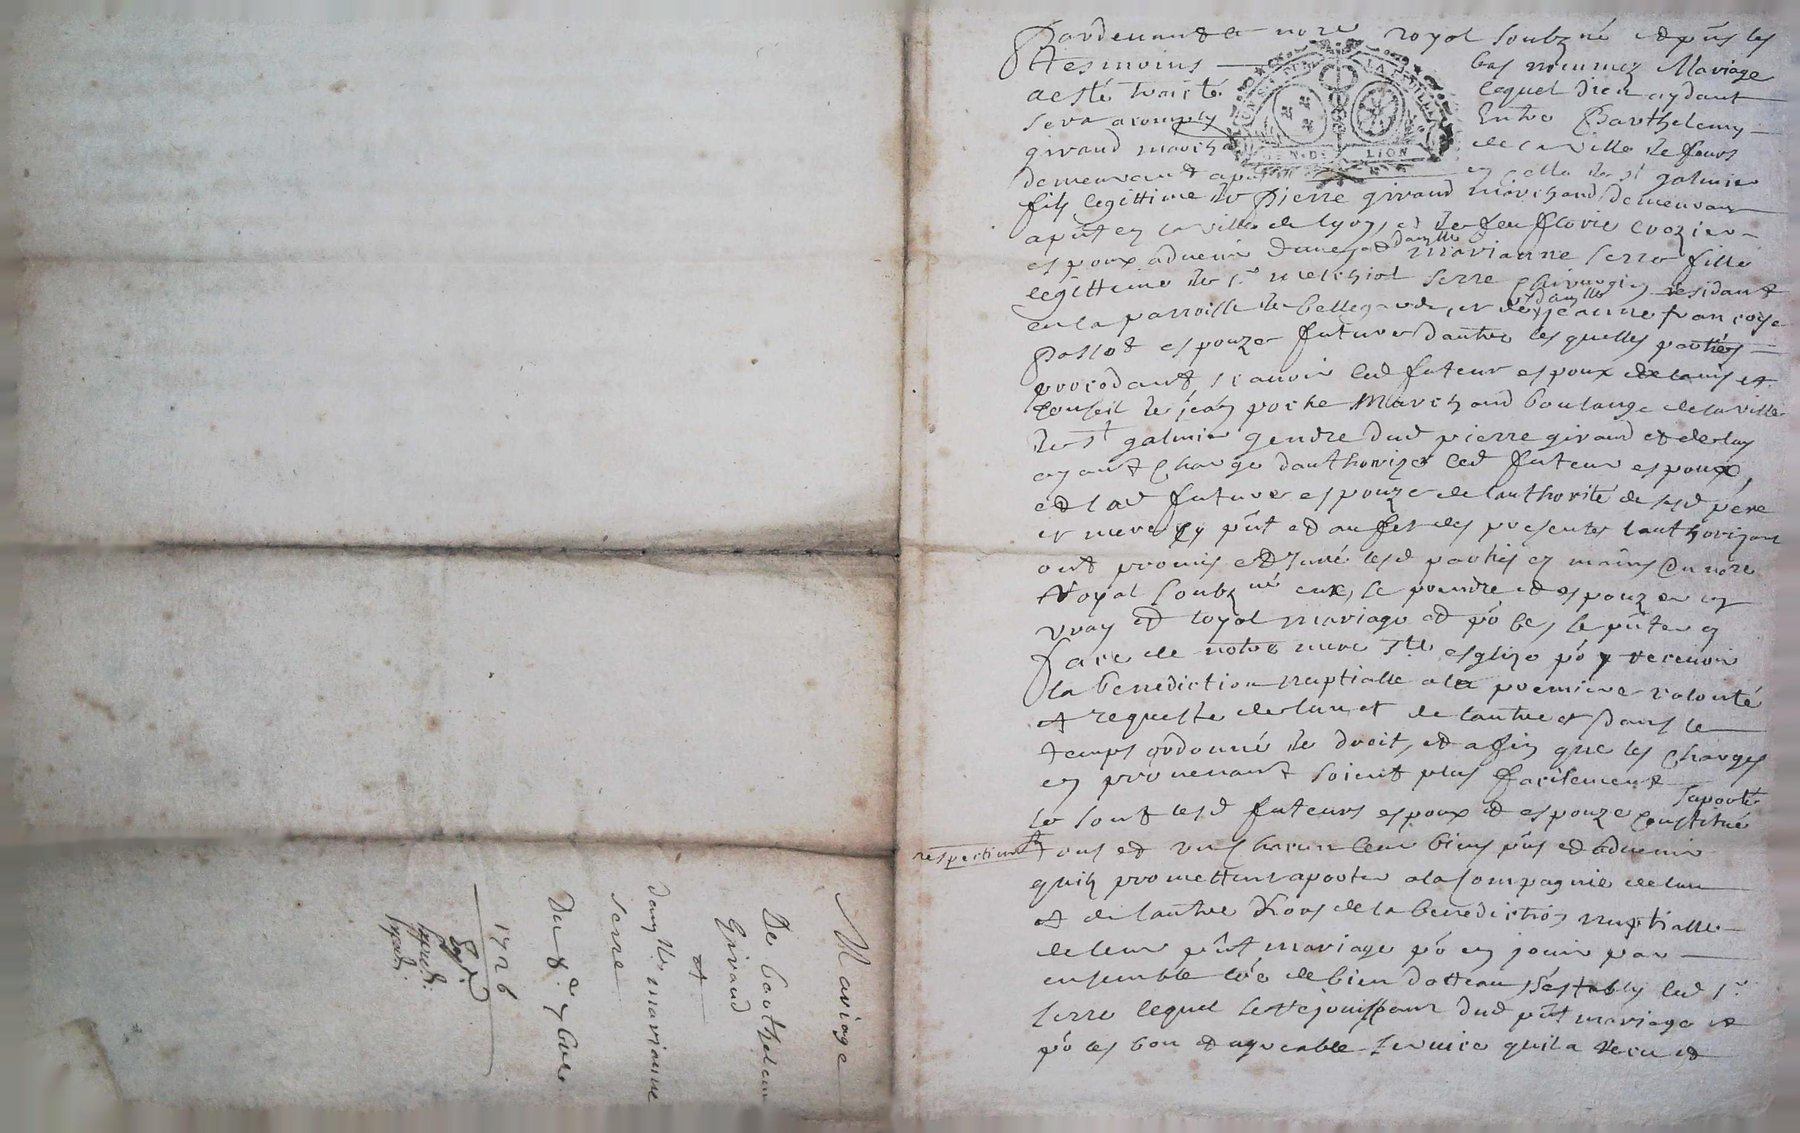 Pardevant le nore royal soubzné et pñs les
tesmoins bas nommez Mariage
a esté traicté lequel Dieu aydant
sera acomply Entre Barthelemy
giraud march de la ville de feurs
demeurant apnt en celle de st galmier
fils legittime de Pierre giraud marchand demeurant
apñt en la ville de lyon, et de feu florie crozier
espoux advenir d'une et damlle marianne serre fille
legittime de sr melchiol serre chirurgien residant
en la parroisse de bellegarde, et de damlle jeanne francoise
passot espouze future d'autre les quelles parties
procedant scavoir led futeur espoux de lavis et
conseil de jean poche Marchand boulange de la ville
de st galmier gendre dud pierre giraud et de luy
ayant charge dauthorizer led futeur espoux,
et lad future espouze de lauthorité de sesd pere
et mere cy pñt et au fet des presentes lauthorizant
ont promis et juré lesd parties es mains du nore
Royal soubzné eux, se prendre et espouzer en
vray et loyal mariage et po ce, se pñter en
face de notre mere ste esglize po y recevoir
la benediction nuptialle a la premiere volonté
et requeste de lun et de lautre et dans le
temps ordonné de droit, et afin que les charges
en provenant soient plus facilement
suporté
le sont lesd futeurs espoux et espouze constitué
respectivemt tous et uns chacun leur biens pñs et advenir
quils promettent aporter a la compagnie de lun
et de lautre lhors de la benediction nuptialle
de leur pñt mariage po en jouir par
ensemble de bien dotteaux led sr
serre lequel se rejouissant dud pñt mariage et
po les bon et agreable service quil a receu et
Mariage
De barthelemy
Giraud
et
damlle marianne
serre
Du 8e 9bre
1726
Exped.
Exped.